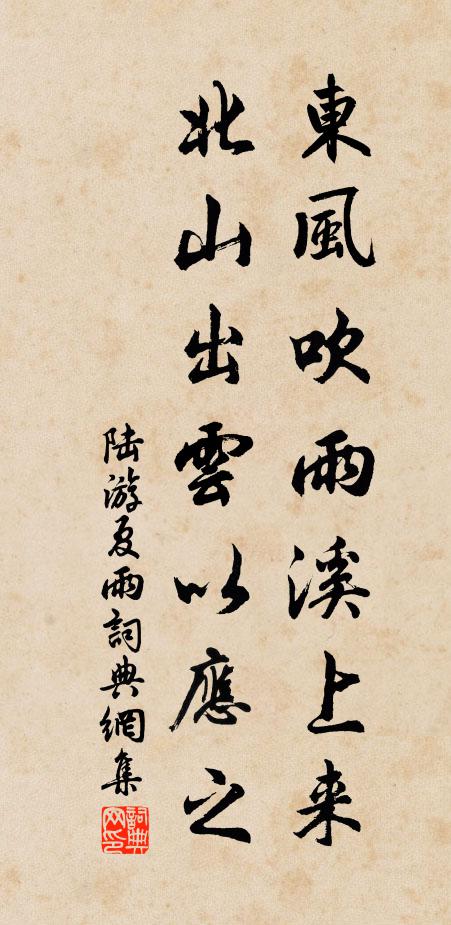 東風吹雨溪上来
北山出雲以應之
陆游夏雨詞典網集
詞典网印